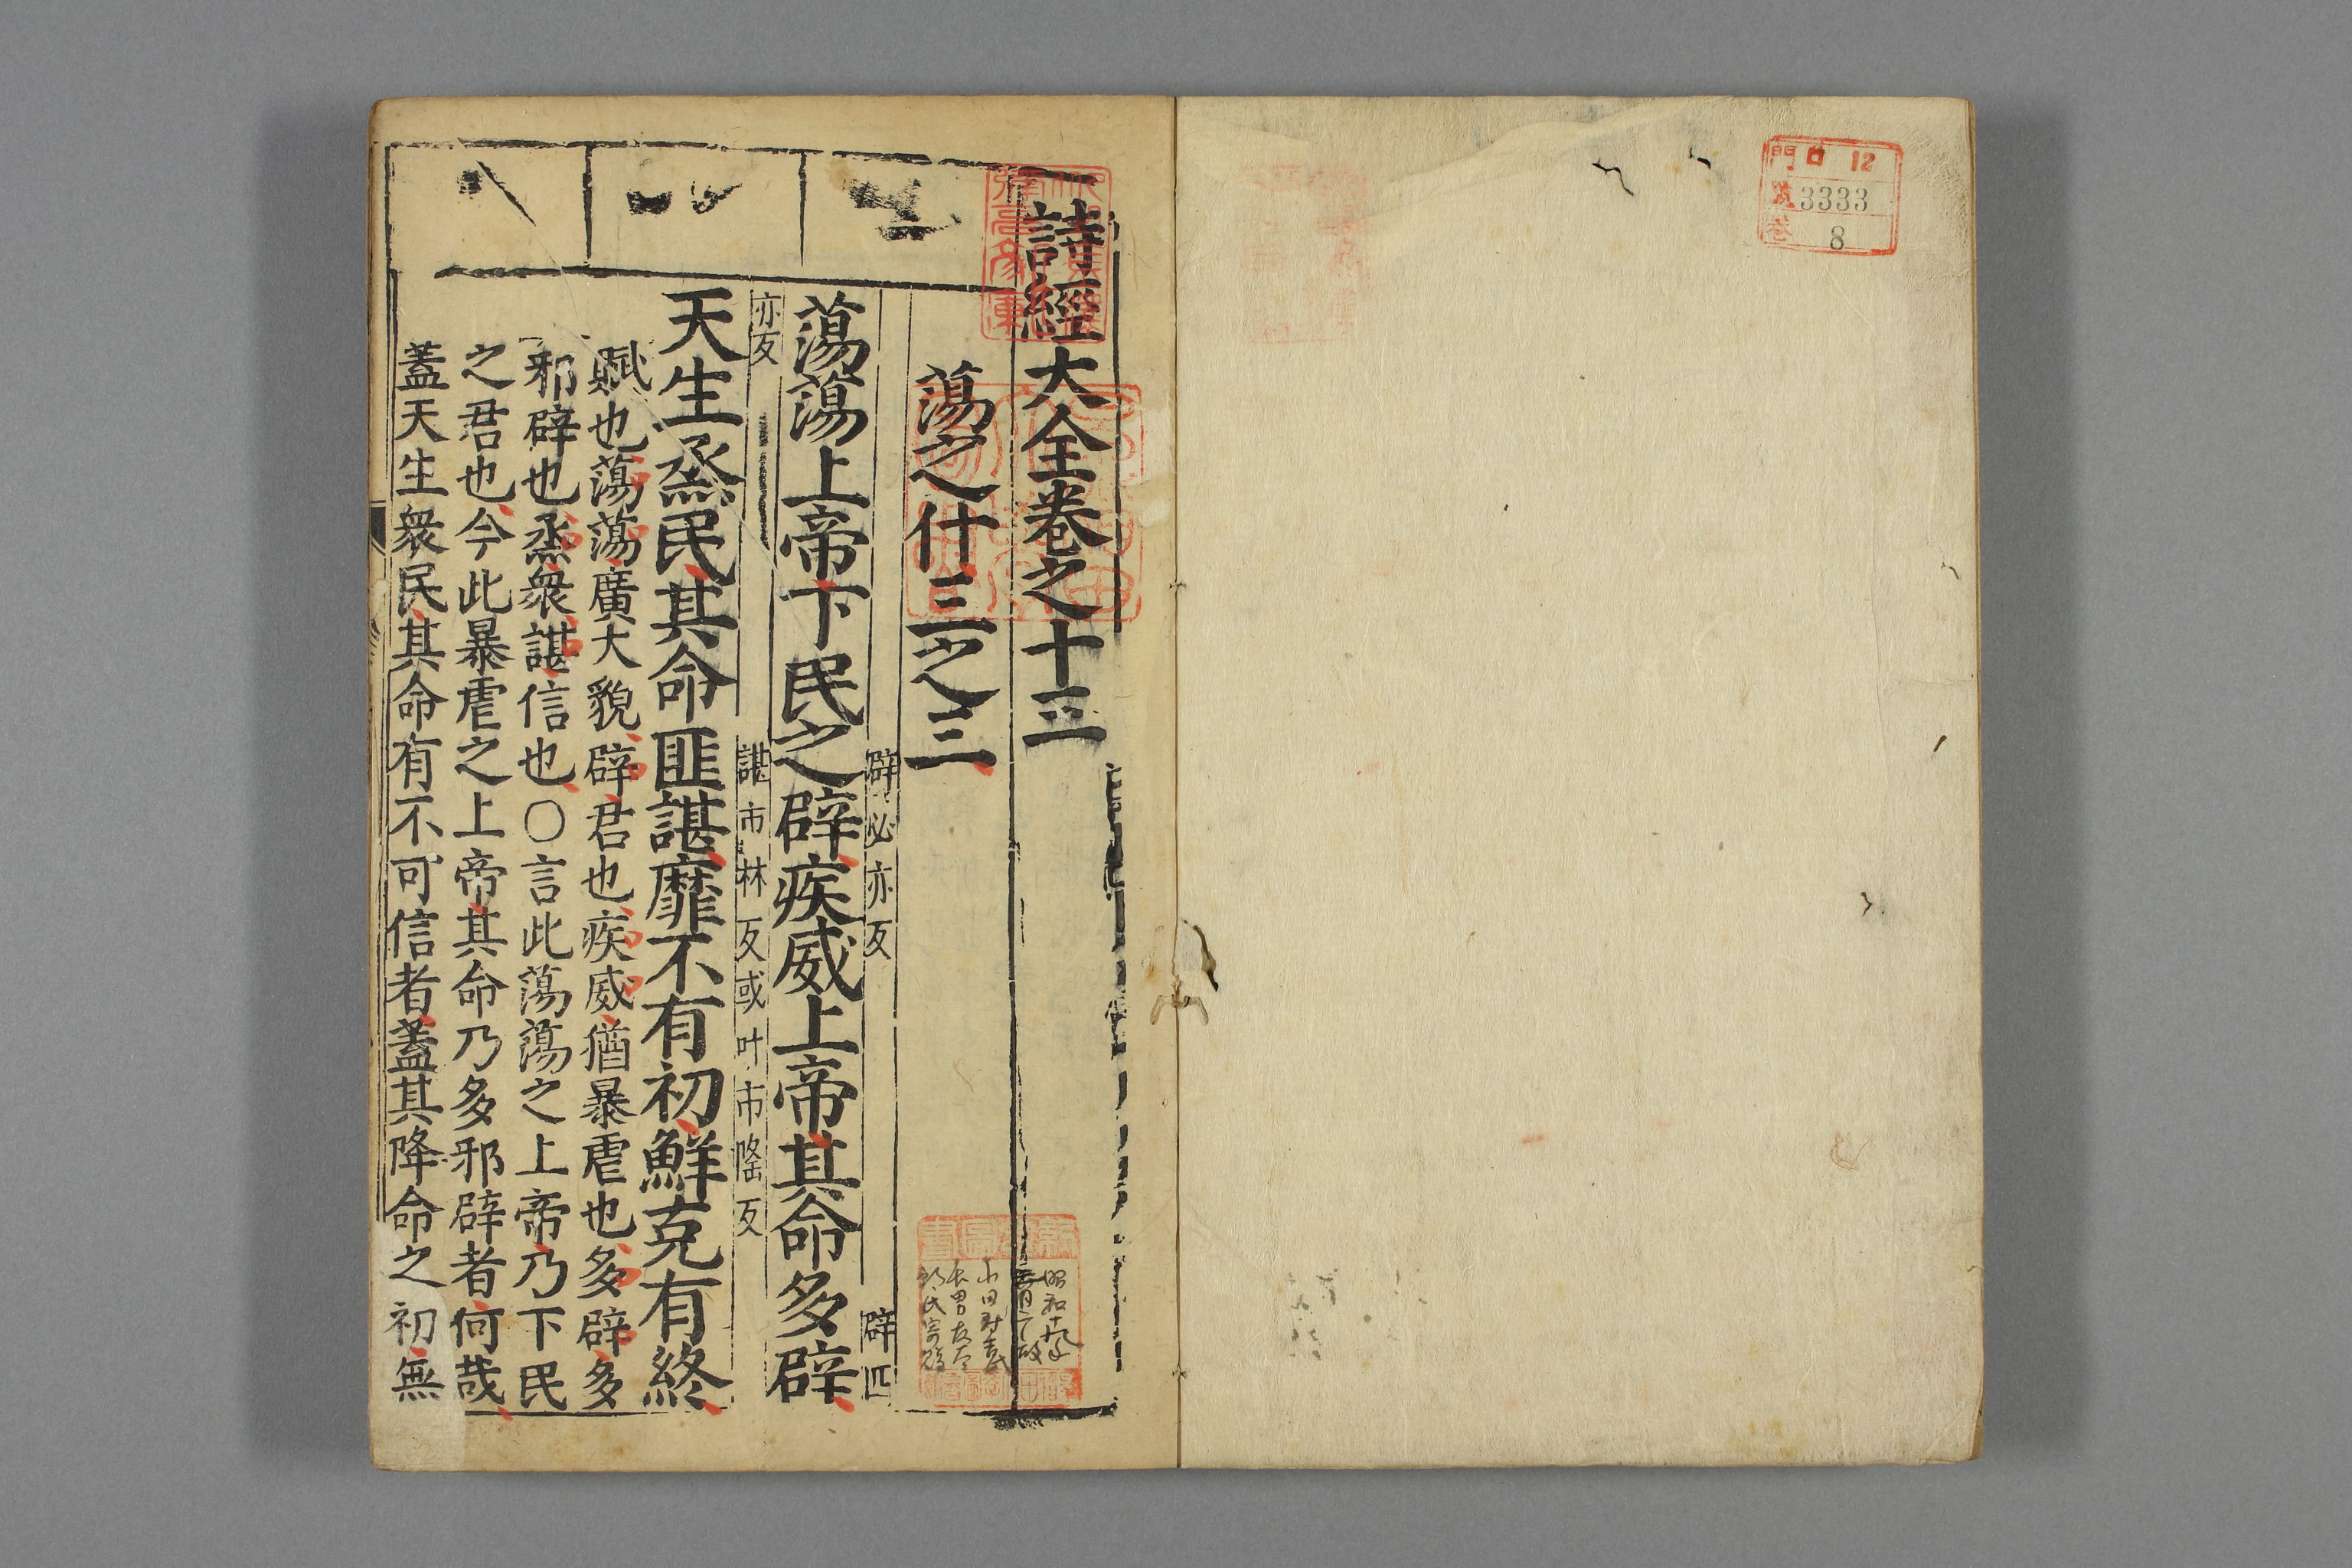 門 口 12
號 3333
卷 8
詩經大全卷之十三
蕩之什三之三
辟必亦反 辟匹
蕩蕩上帝下民之辟疾威上帝其命多辟
亦反 諶市林反或叶市隆反
天生烝民其命匪諶靡不有初鮮克有終
賦也蕩蕩廣大貌辟君也疾威猶暴虐也多辟多
邪辟也烝衆諶信也○言此蕩蕩之上帝乃下民
之君也今此暴虐之上帝其命乃多邪辟者何哉
蓋天生衆民其命有不可信者蓋其降命之初無
昭和十九年